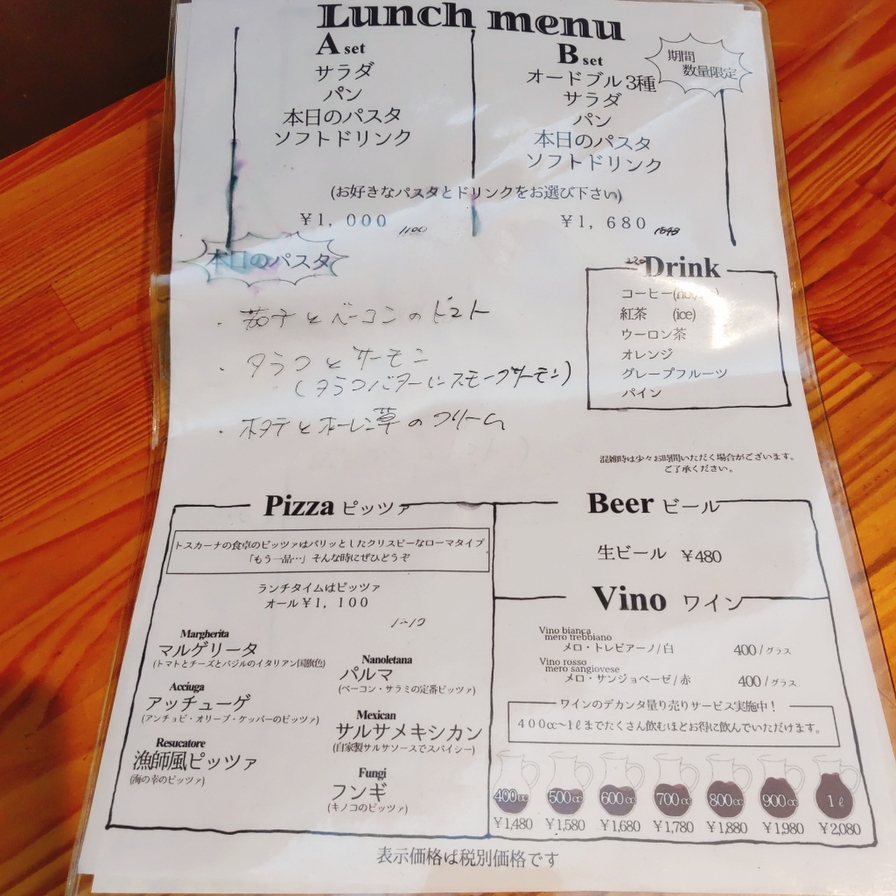 Lunch menu
A set
サラダ
パン
本日のパスタ
ソフトドリンク
B set
オードブル3種
サラダ
パン
本日のパスタ
ソフトドリンク
期間
数量限定
(お好きなパスタとドリンクをお選び下さい)
¥1,000
1100
¥1,680
本日のパスタ
・茄子とベーコンのトマト
・タラコとサーモン
(タラコバターにスモークサーモン)
・ホタテとホーレン草のクリーム
Drink
コーヒー
紅茶 (ice)
ウーロン茶
オレンジ
グレープフルーツ
パイン
混雑時は少々お時間いただく場合がございます。
ご了承ください。
Pizza ピッツァ
トスカーナの食卓のピッツァはパリッとしたクリスピーなローマタイプ
「もう一品…」そんな時にぜひどうぞ
ランチタイムはピッツァ
オール¥1,100
Margherita
マルゲリータ
(トマトとチーズとバジルのイタリアン国旗色)
Acciuga
アッチューゲ
(アンチョビ・オリーブ・ケッパーのピッツァ)
Resucatore
漁師風ピッツァ
(海の幸のピッツァ)
Nanoletana
パルマ
(ベーコン・サラミの定番ピッツァ)
Mexican
サルサメキシカン
(自家製サルサソースでスパイシー)
Fungi
フンギ
(キノコのピッツァ)
Beer ビール
生ビール ¥480
Vino ワイン
Vino bianca
mero trebbiano
メロ・トレビアーノ/白 400/グラス
Vino rosso
mero sangiovese
メロ・サンジョベーゼ/赤 400/グラス
ワインのデカンタ量り売りサービス実施中!
400cc~1ℓまでたくさん飲むほどお得に飲んでいただけます。
400cc 500cc 600cc 700cc 800cc 900cc 1ℓ
¥1,480 ¥1,580 ¥1,680 ¥1,780 ¥1,880 ¥1,980 ¥2,080
表示価格は税別価格です